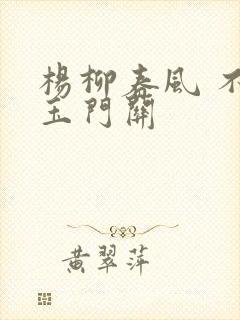 楊柳春風 不
玉門關
黃翠萍